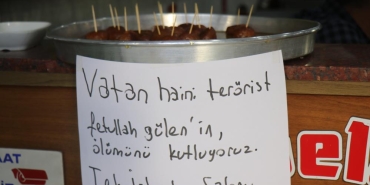 Vatan haini terörist
fetullah gülen'in,
ölümünü kutluyoruz.
AAT